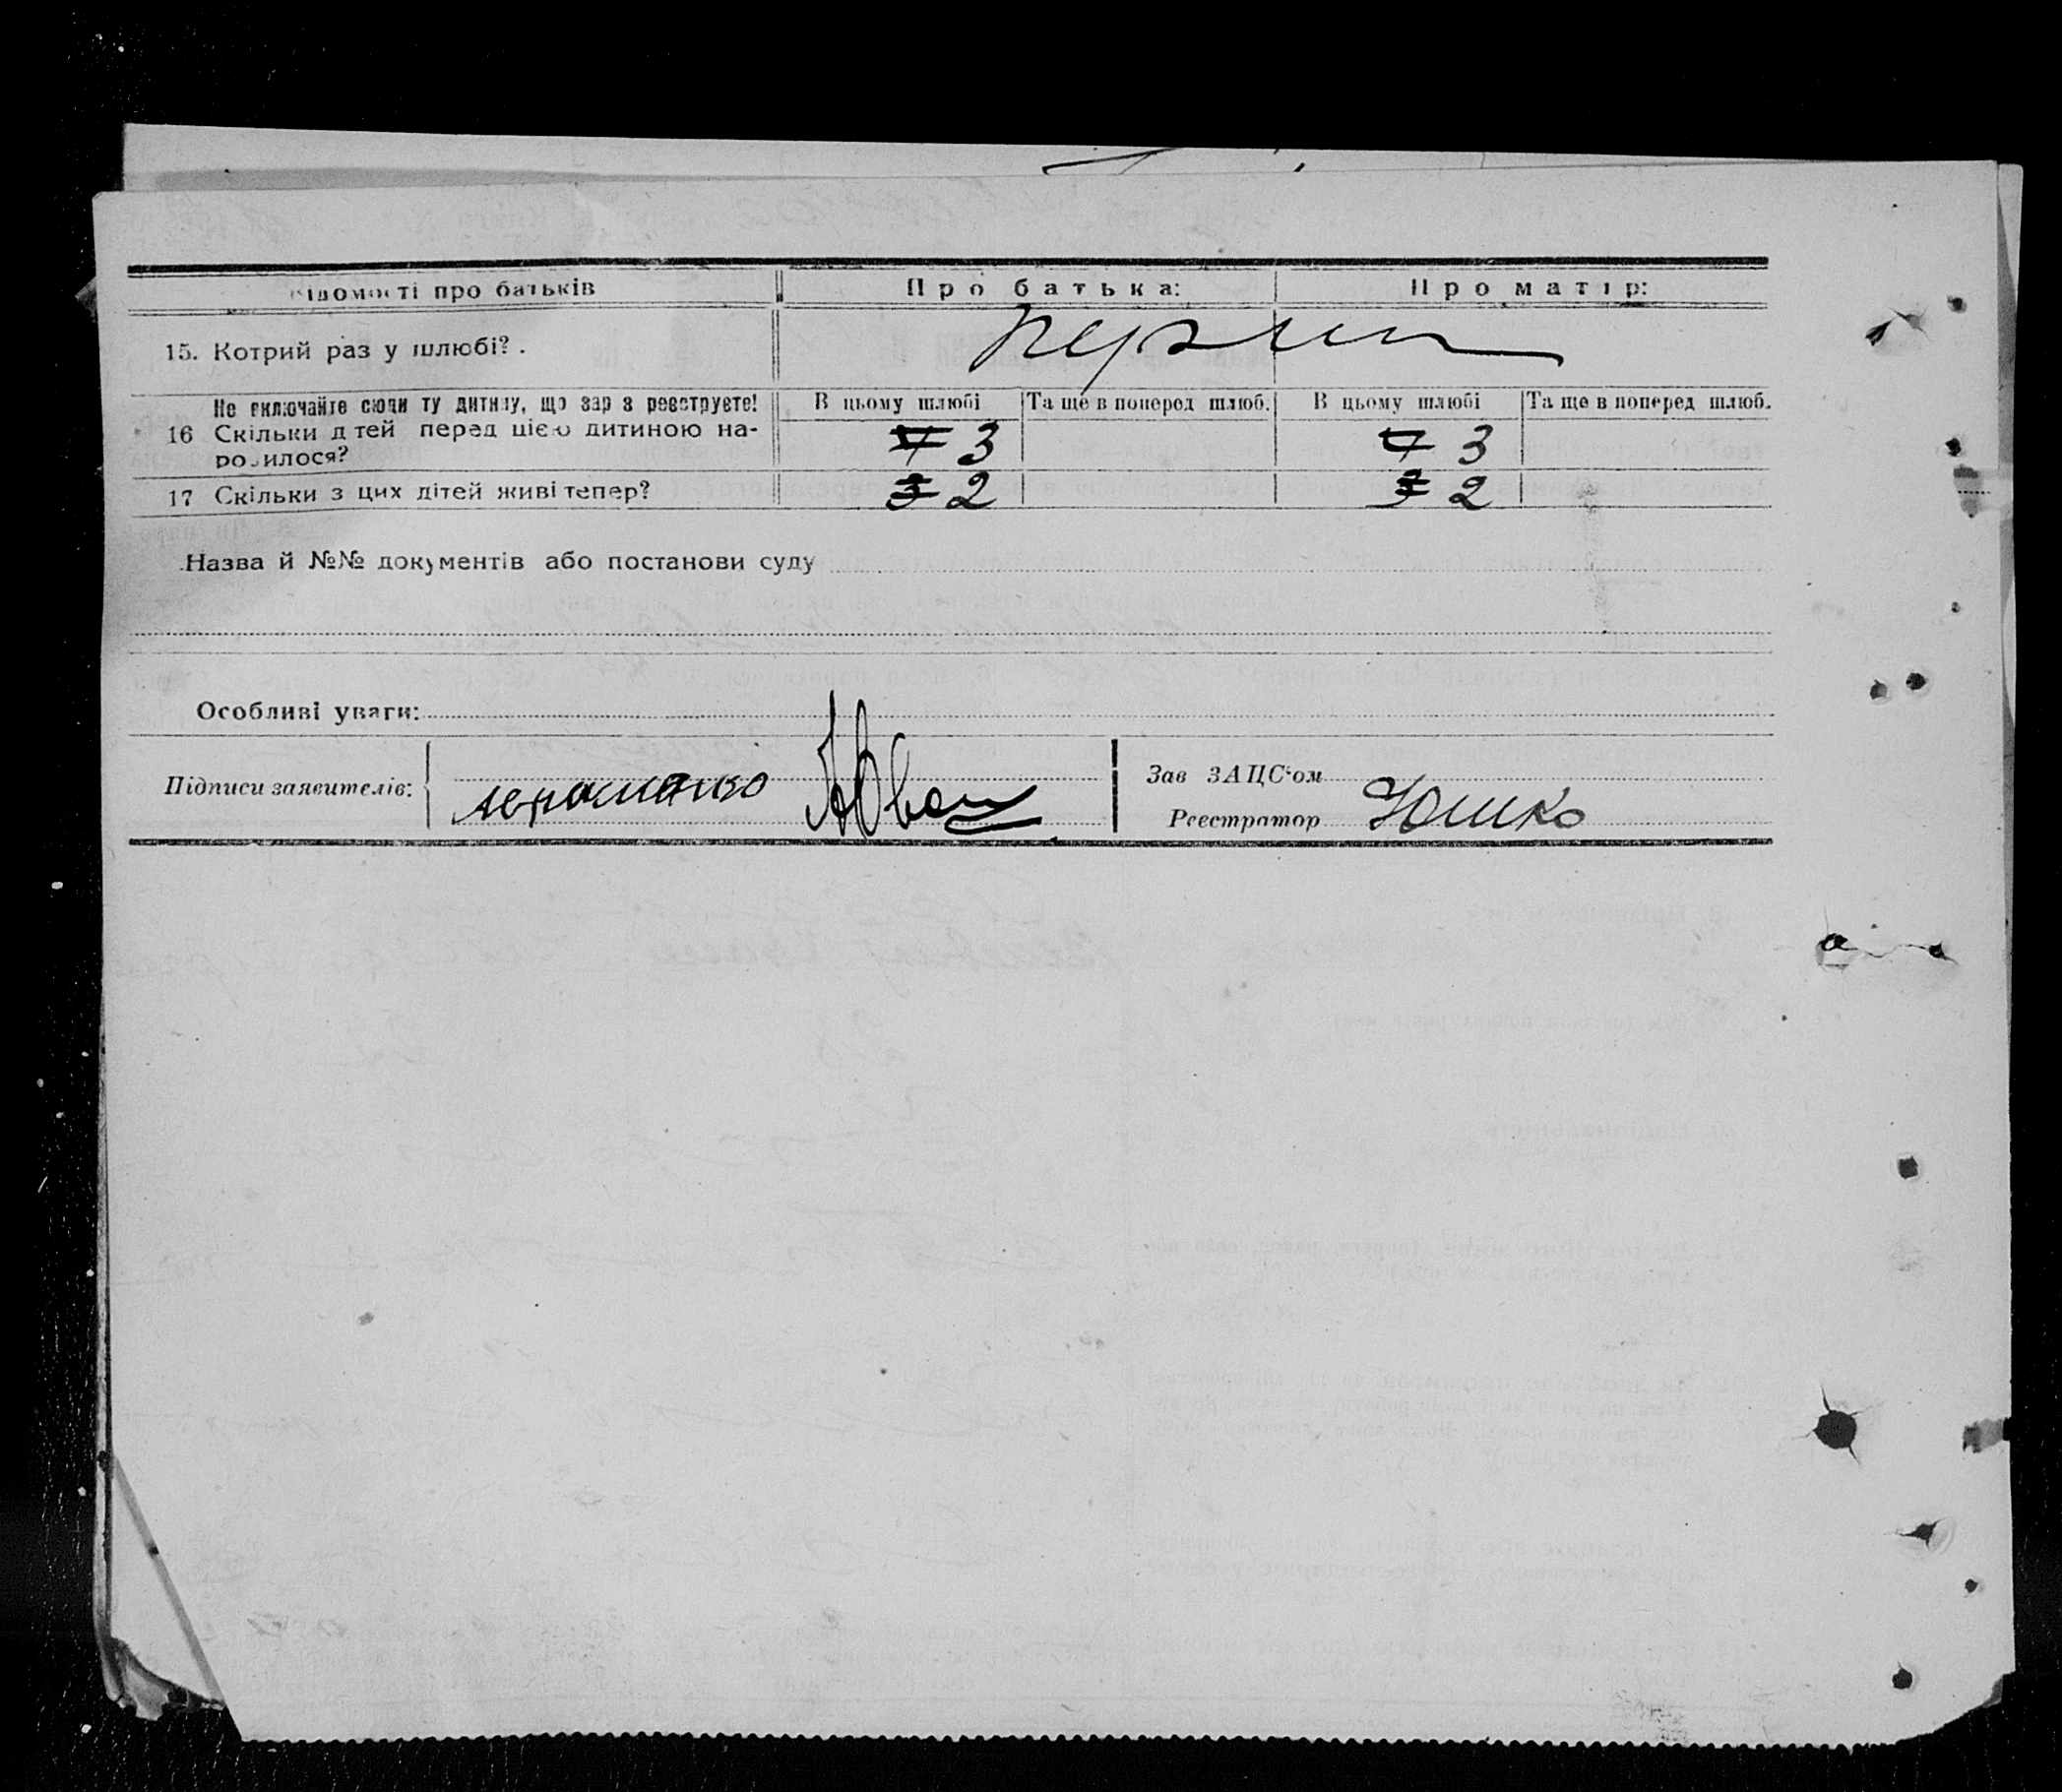 Відомості про батьків Про батька: Про матір:
15. Котрий раз у шлюбі? . перший
Не включайте сюди ту дитину, що зараз реєструєте! В цьому шлюбі Та ще в поперед шлюб. В цьому шлюбі Та ще в поперед шлюб.
16 Скільки дітей перед цією дитиною на-
родилося? 4 3 4 3
17 Скільки з цих дітей живі тепер? 3 2 3 2
Назва й №№ документів або постанови суду
Особливі уваги:
Підписи заявителів: Зав ЗАЦС'ом
Реєстратор Юшко